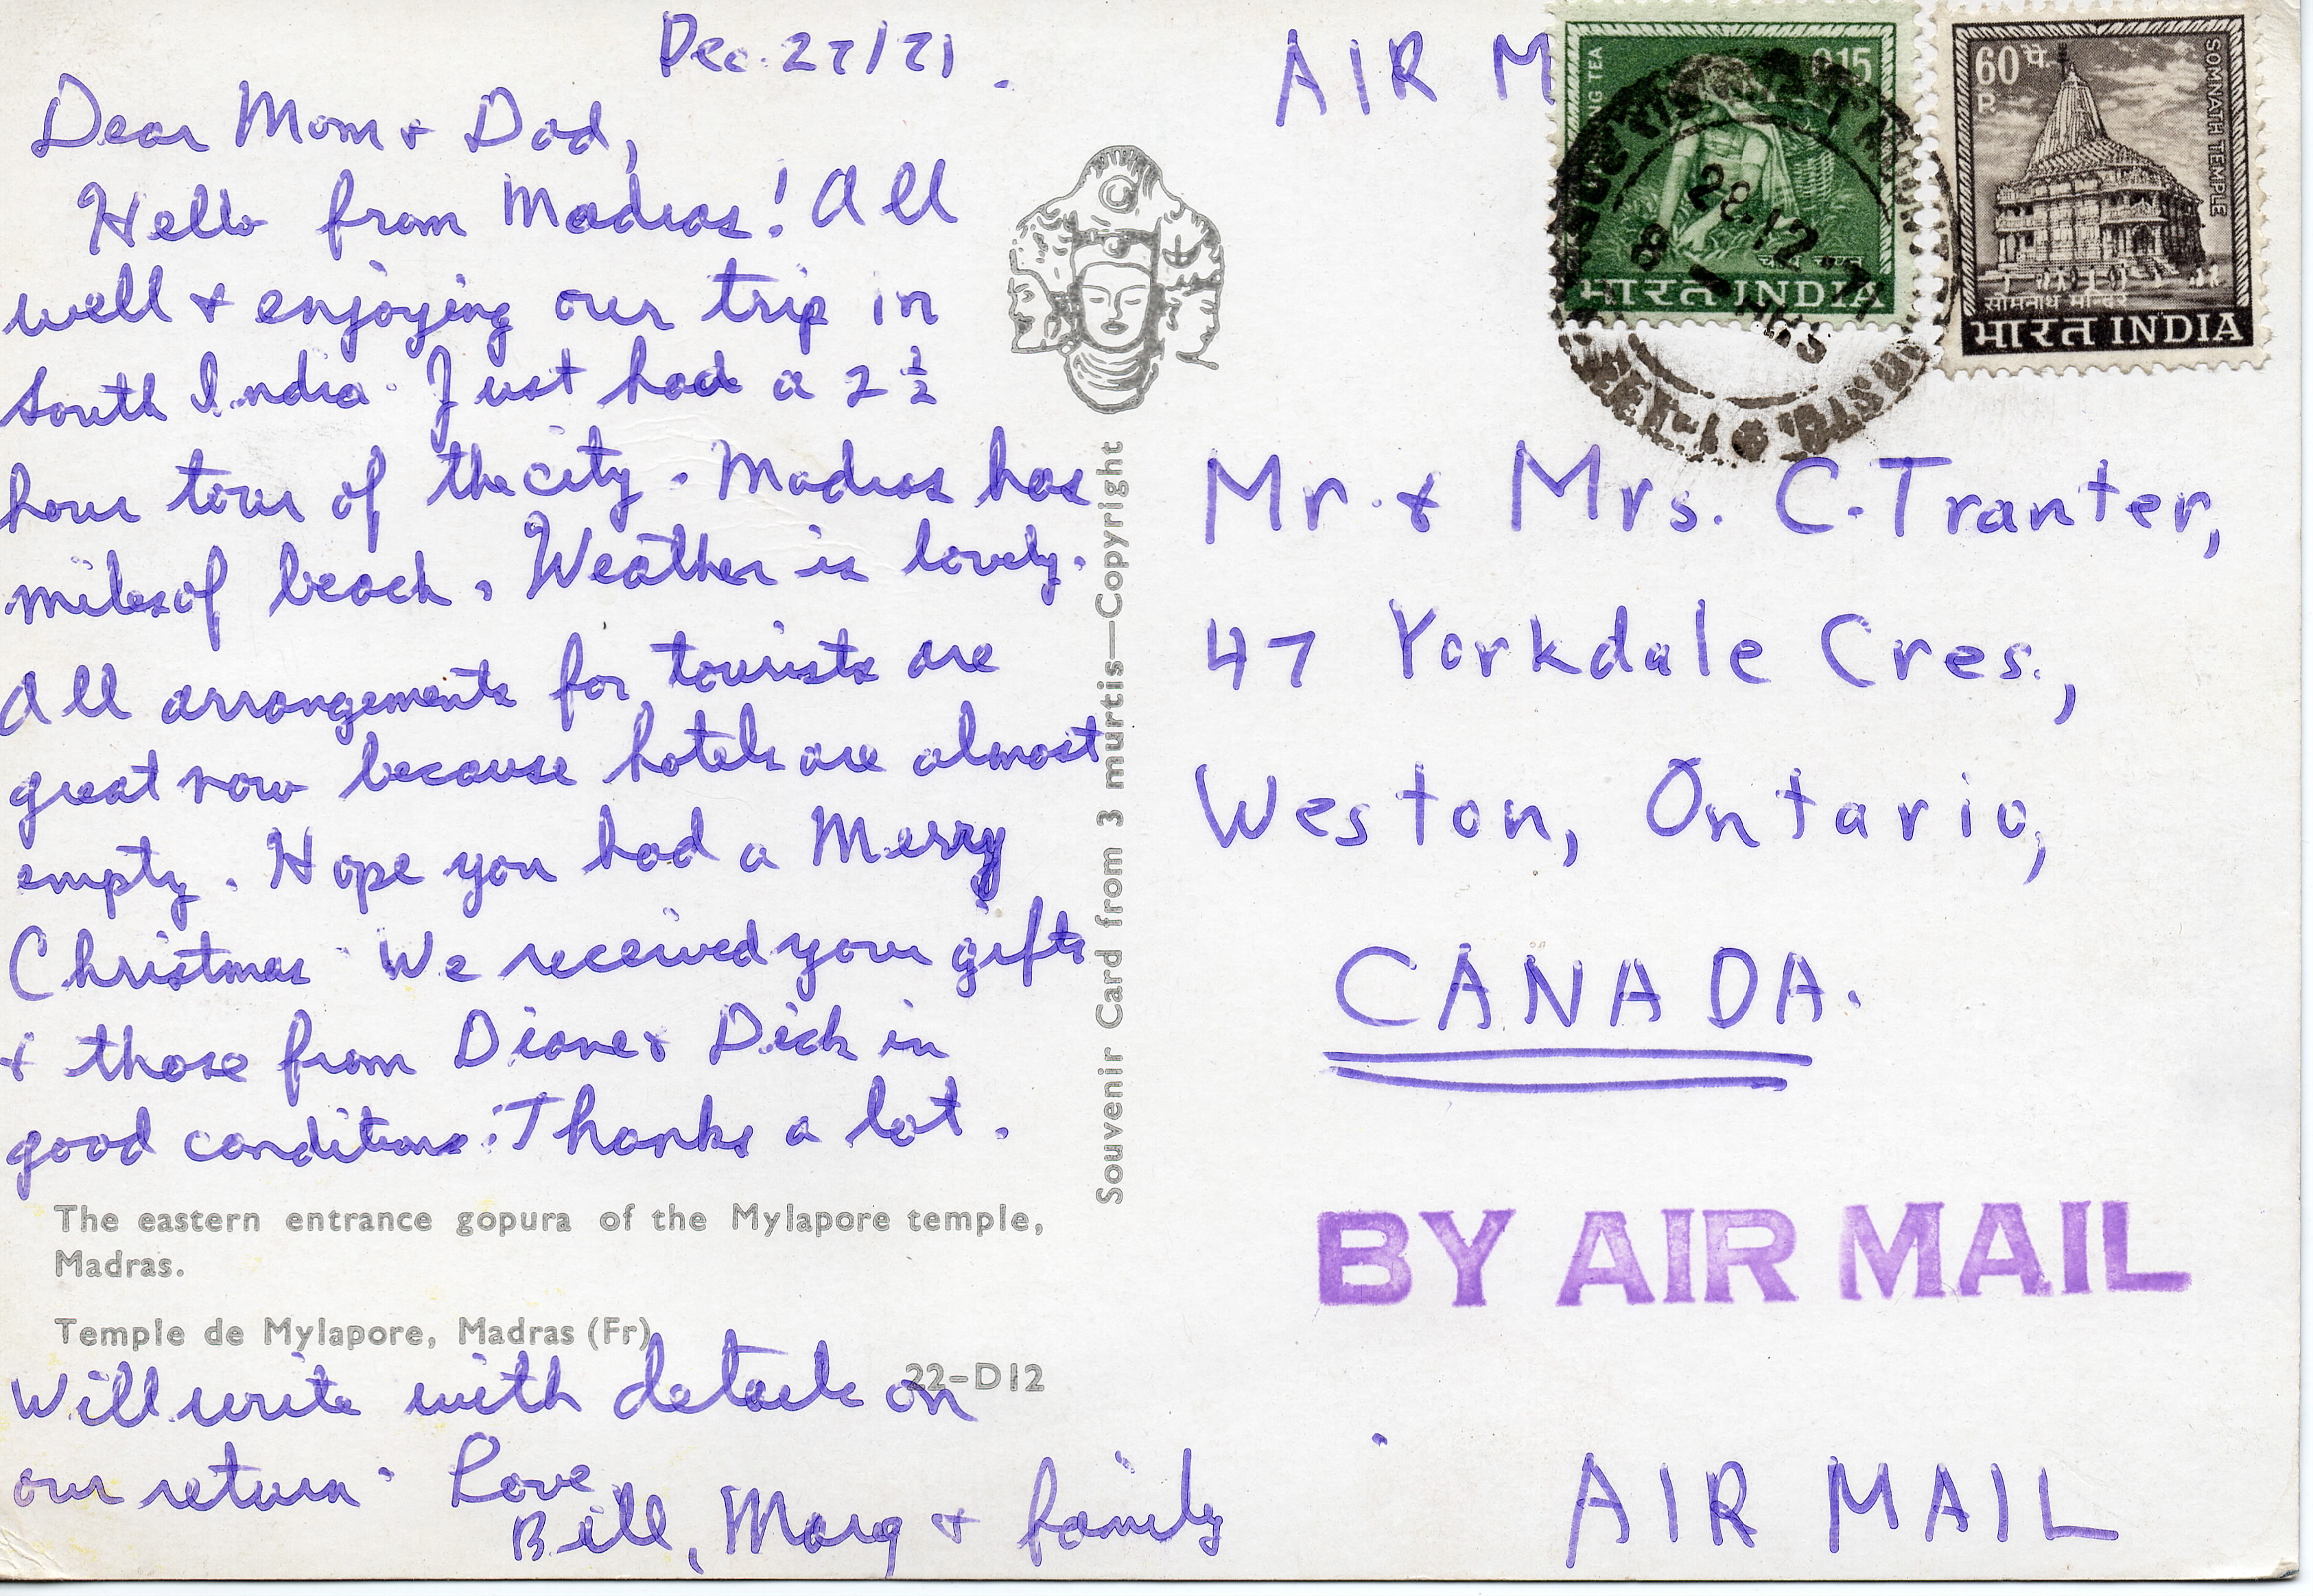 Dec. 27/71.
Dear Mom & Dad,
Hello from Madras! All
well & enjoying our trip in
South India. Just had a 2 1/2
hour tour of the city. Madras has
miles of beach. Weather is lovely.
All arrangements for tourists are
great now because hotels are almost
empty. Hope you had a Merry
Christmas. We received your gifts
& those from Diane & Dick in
good condition. Thanks a lot.
The eastern entrance gopura of the Mylapore temple,
Madras.
Temple de Mylapore, Madras (Fr)
22-D12
Will write with details on
our return. Love,
Bill, Marg & family
Souvenir Card from 3 murtis—Copyright
AIR M
0.15
चाय चयन
भारत INDIA
28.12.71
8
HRS
60 पै.
P.
SOMNATH TEMPLE
सोमनाथ मन्दिर
भारत INDIA
Mr. & Mrs. C. Tranter,
47 Yorkdale Cres.,
Weston, Ontario,
CANADA.
BY AIR MAIL
AIR MAIL